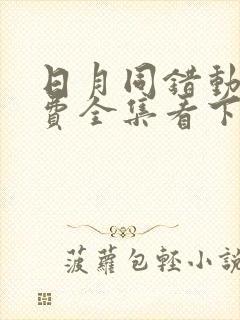 日月同错動
費全集看下
菠蘿包輕小説